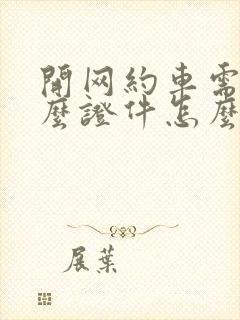 開网約車需
麼證件怎麼
展葉